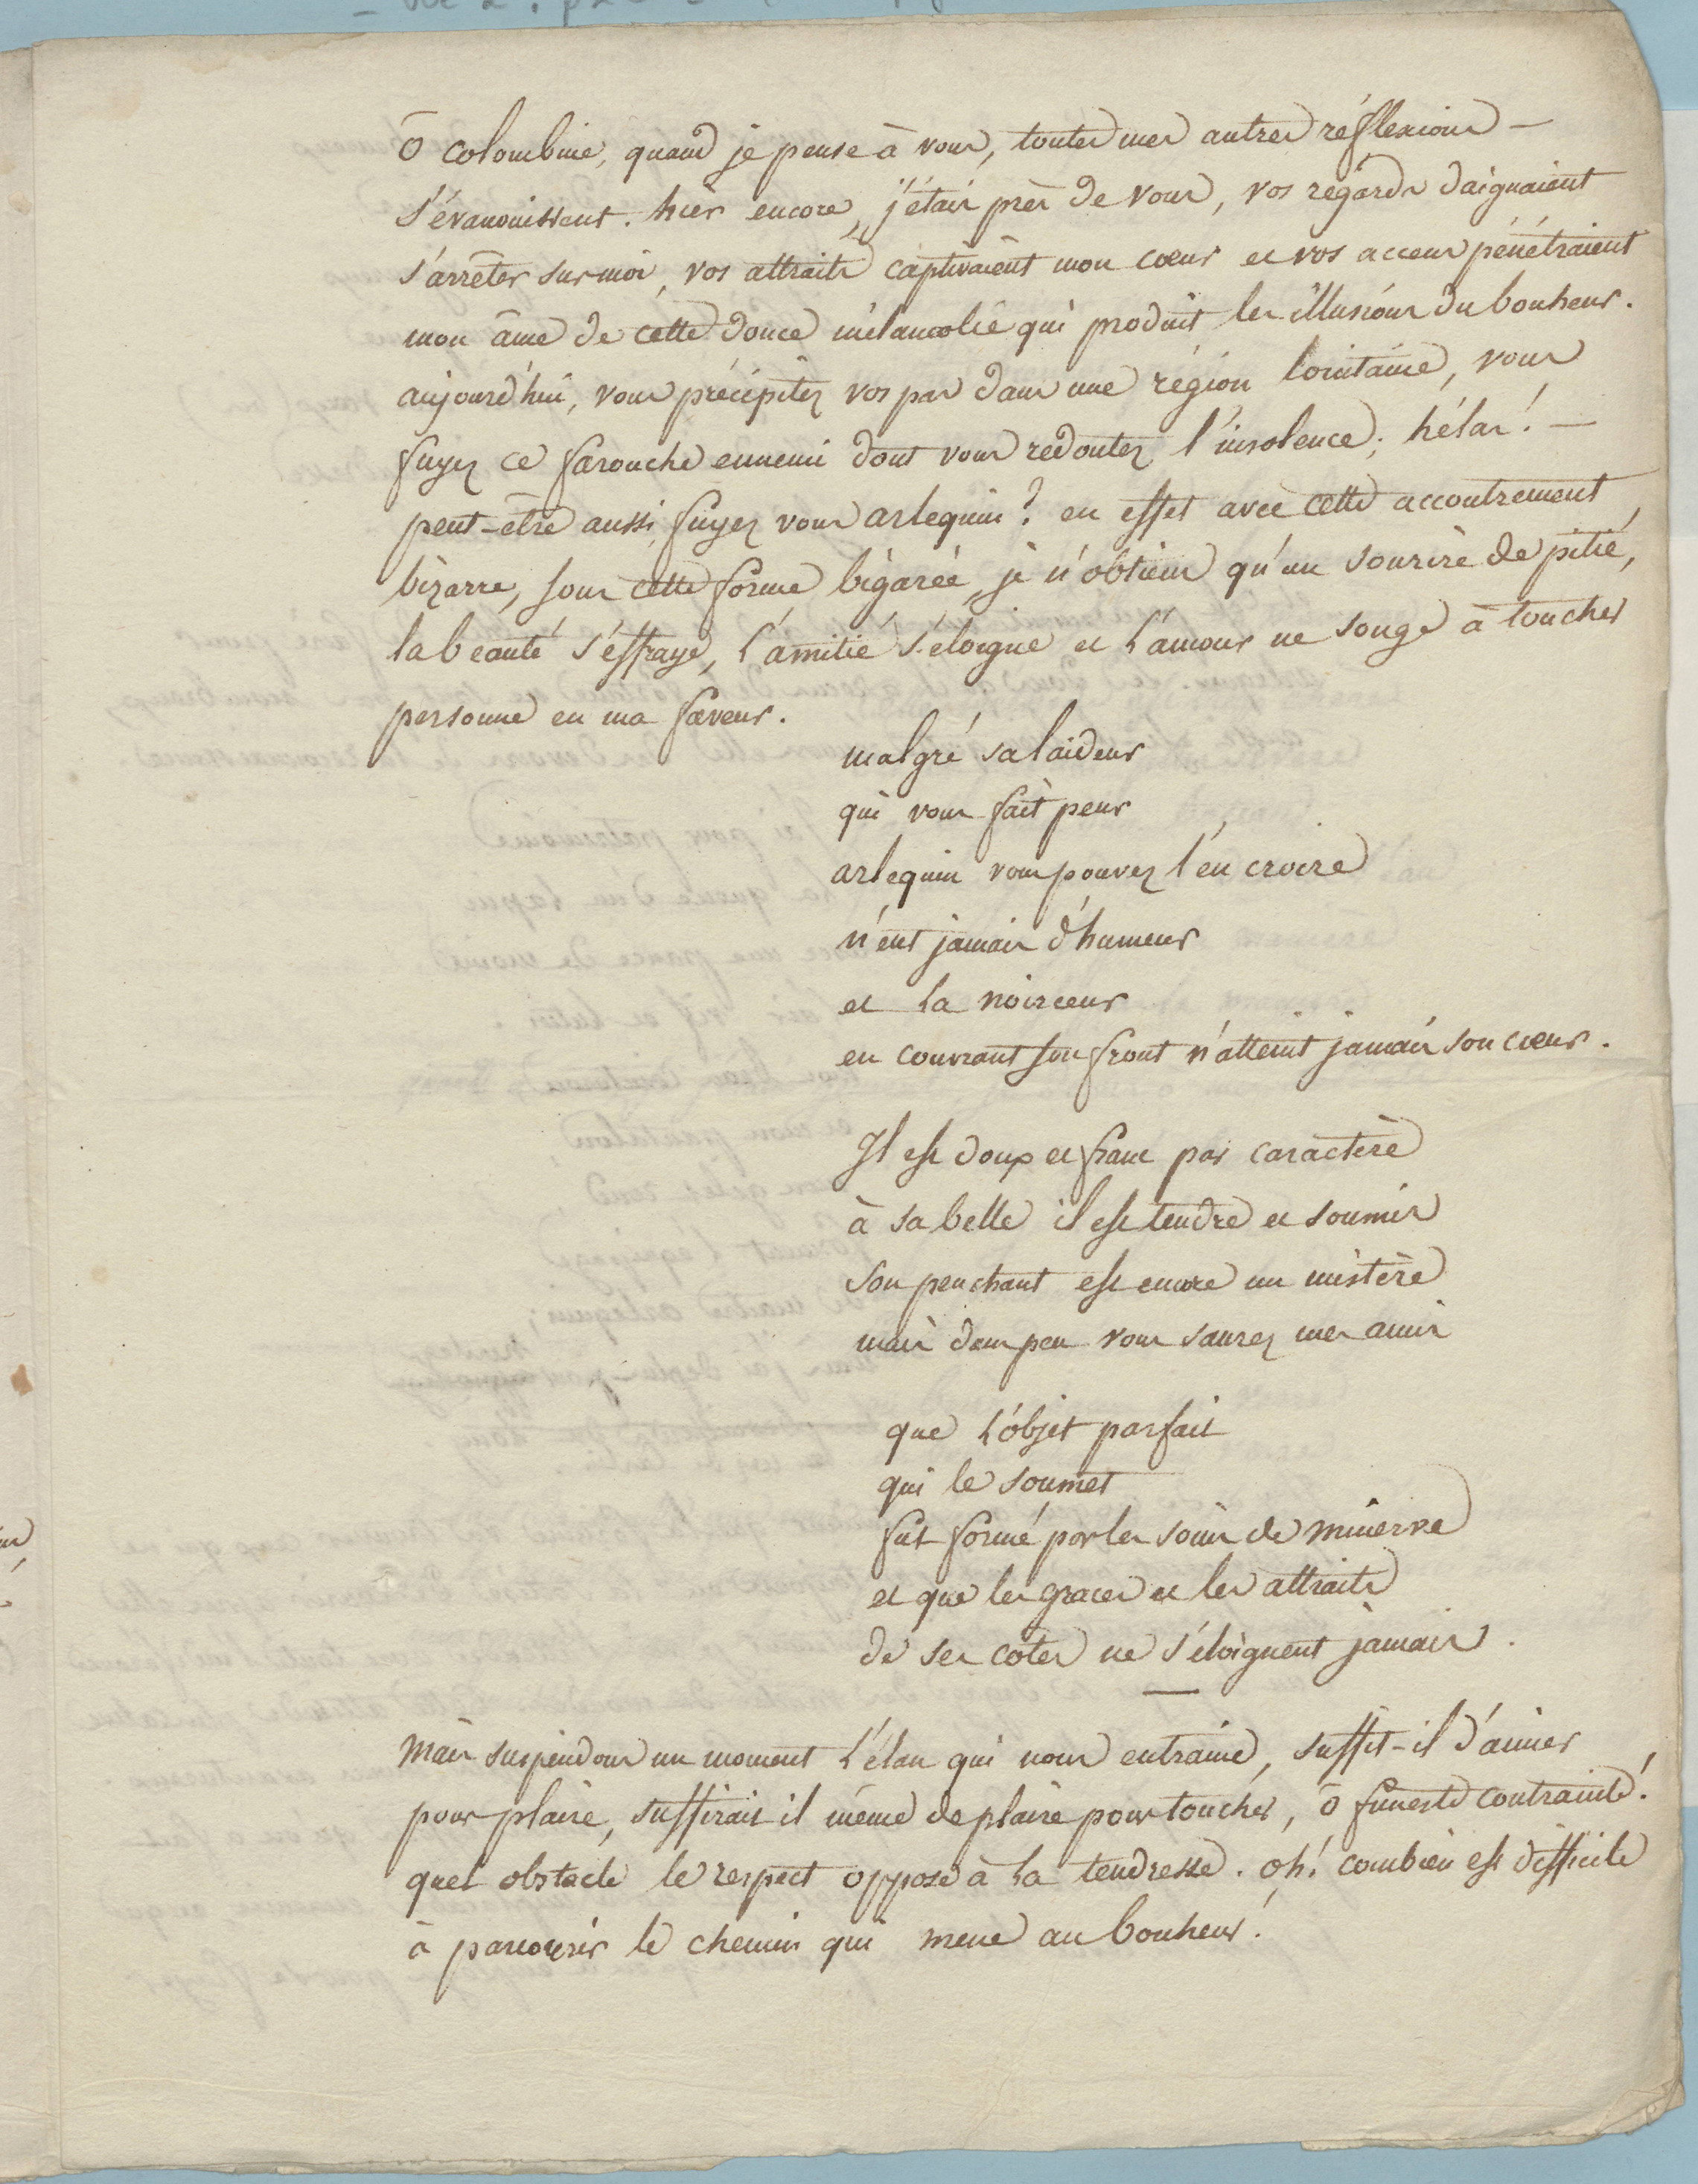 ô colombine, quand je pense à vous, toutes mes autres réflexions —
s'évanouissent. hier encore, j'étais près de vous, vos regards daignaient
s'arrêter sur moi, vos attraits captivaient mon cœur et vos accens pénétraient
mon âme de cette douce mélancolie qui produit les illusions du bonheur.
aujourd'hui, vous précipitez vos pas dans une région lointaine, vous
fuyez ce farouche ennemi dont vous redoutez l'insolence; hélas! —
peut-être aussi fuyez vous arlequin? en effet avec cette accoutrement
bizarre, sous cette forme bigarée, je n'obtiens qu'un sourire de pitié,
la beauté s'éffraye, l'amitié s'éloigne et l'amour ne songe à toucher
personne en ma faveur.
malgré sa laideur
qui vous fait peur
arlequin vous pouvez l'en croire
n'eut jamais d'humeur
et la noirceur
en couvrant son front n'atteint jamais son cœur.
Il est doux et franc par caractère
à sa belle il est tendre et soumis
son penchant est encore un mistère
mais dans peu vous saurez mes amis
que l'objet parfait
qui le soumet
fut formé par les soins de minerve
et que les graces et les attraits
de ses cotes ne s'éloignent jamais.
mais suspendons un moment l'élan qui nous entraine, suffit-il d'aimer
pour plaire, suffirait-il même de plaire pour toucher, ô funeste contrainte!
quel obstacle le respect oppose à la tendresse. oh! combien est difficile
à parcourir le chemin qui mene au bonheur!